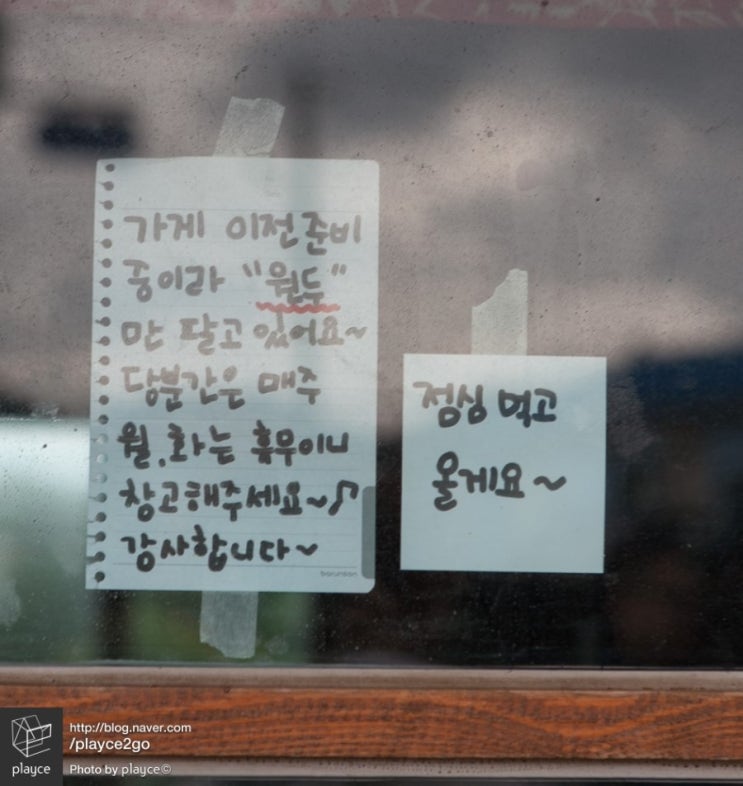 가게 이전준비
중이라 "원두"
만 팔고있어요~
당분간은 매주
월,화는 휴무이니
참고해주세요~♪
감사합니다~
barunson
점심 먹고
올게요~
playce
http://blog.naver.com
/playce2go
Photo by playce©